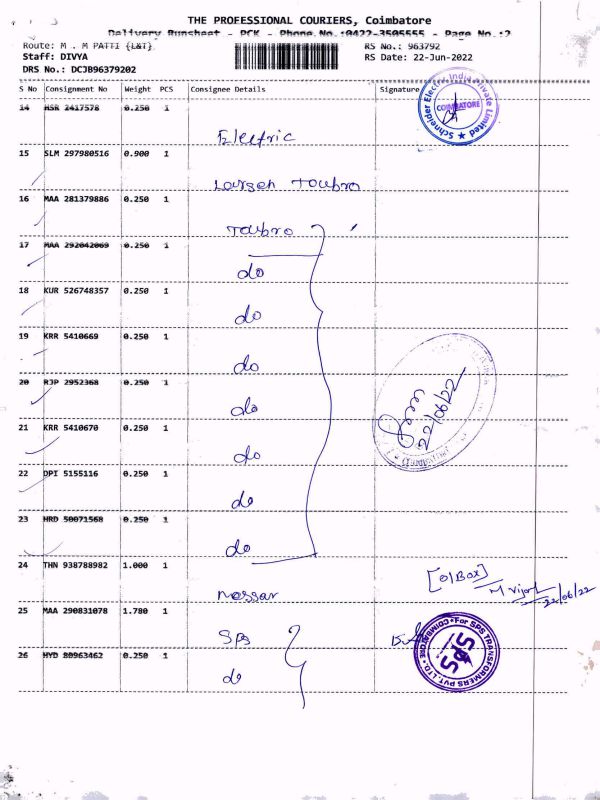 THE PROFESSIONAL COURIERS, Coimbatore
Delivery Runsheet - PCK - Phone No.:0422-3505555 - Page No.:2
Route: M . M PATTI {L&T} RS No.: 963792
Staff: DIVYA RS Date: 22-Jun-2022
DRS No.: DCJB96379202
S No Consignment No Weight PCS Consignee Details Signature
Schneider Electric India Private Limited
COIMBATORE
14 HSR 2417578 0.250 1
Electric
15 SLM 297980516 0.900 1
Larsen Toubro
16 MAA 281379886 0.250 1
Toubro
17 MAA 292042069 0.250 1
do
18 KUR 526748357 0.250 1
do
19 KRR 5410669 0.250 1
do
20 RJP 2952368 0.250 1
do
22/06/22
21 KRR 5410670 0.250 1
do
22 DPI 5155116 0.250 1
do
23 HRD 50071568 0.250 1
do
24 THN 938788982 1.000 1
[01Box]
Messar M Vijay
22/06/22
25 MAA 290831078 1.780 1
SPS
For SPS TRANSFORMERS PVT. LTD. COIMBATORE
SPS
26 HYD 80963462 0.250 1
do